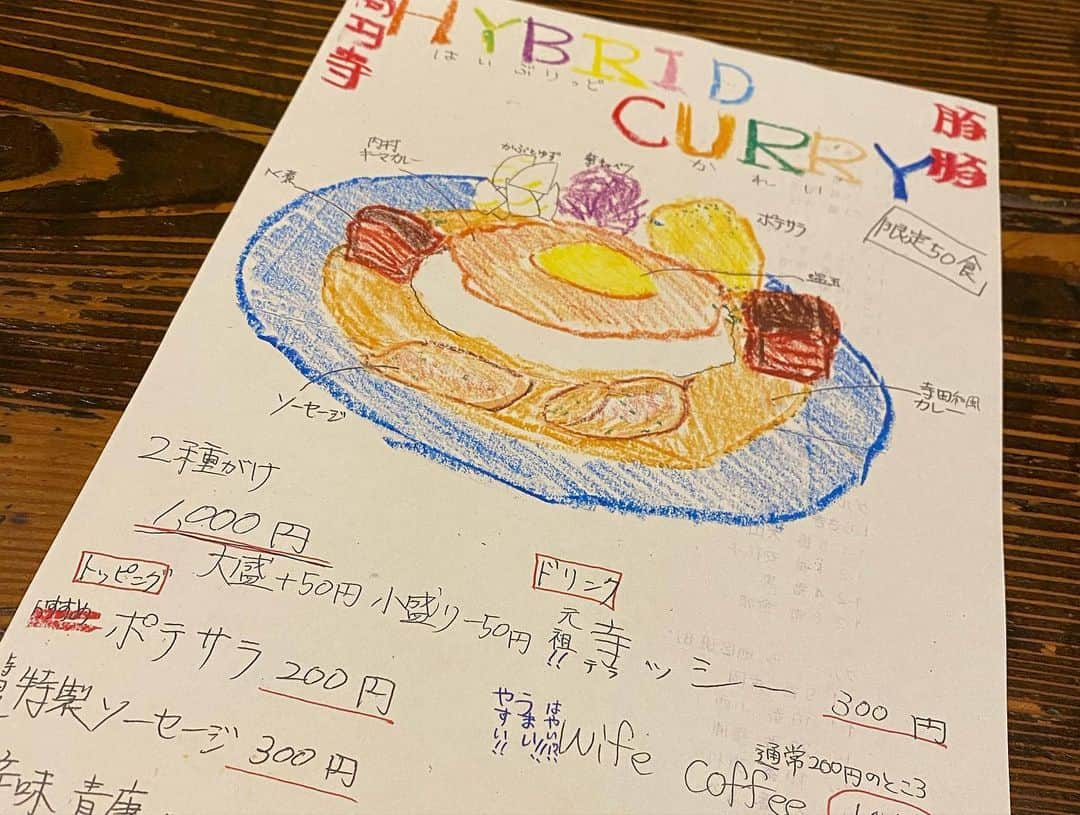 高円寺
HYBRID
はいぶりっど
CURRY
かれい
豚豚
限定50食
内村
キーマカレー
ポテサラ
温玉
ソーセージ
寺田和風
カレー
2種がけ
1,000円
大盛+50円 小盛り-50円
トッピング
ポテサラ 200円
特製ソーセージ 300円
辛味 青唐
ドリンク
元祖!! 寺ッシー 300円
テラ
はやい!?
うまい!!
やすい!!
Wife coffee
通常200円のところ